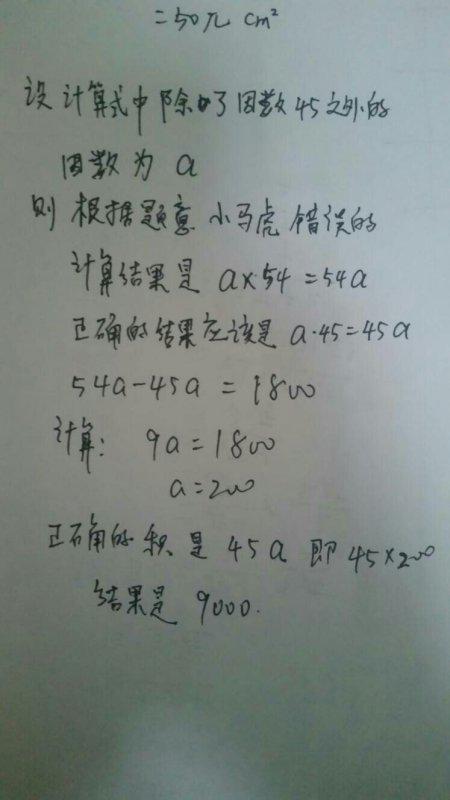 =50π cm²
设计算式中除了因数45之外的
因数为 a
则 根据题意 小马虎 错误的
计算结果是 a×54=54a
正确的结果应该是 a·45=45a
54a-45a=1800
计算: 9a=1800
a=200
正确的积是 45a 即 45×200
结果是 9000.